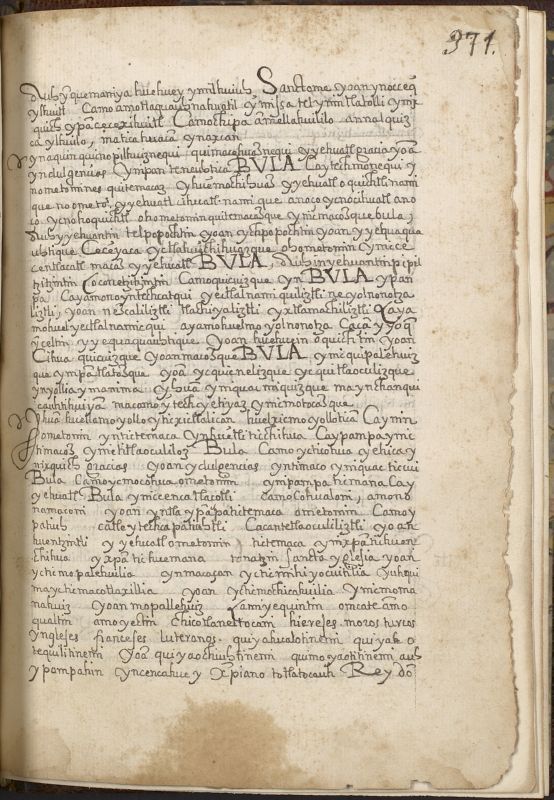 371.
Auh yquemaniya huehuey ymilhuiuh Sanctome yoan ynocceq
ylhuitl Camo amotlaquauhnahuatil ymissa tel yuintlatolli ymix
quich ypan cecexihuitl Camochipa anmellahuililo annalquiz
ca ylhuilo, matica huaca ynaxcan
ynaquin quicnopilhuiznequi quimacehuaznequi yyehuatl gracia yoā
yndulgencias ympan tencuhtica BVLA Caytechmonequi y
nometomines quitemacaz yhuic mochihuaz yyehuatl oquichtli nami
que no ometo, yyehuatl cihuatl nami que anoço ycnocihuatl ano
ço ycnohoquichtl oh ometomin quitemacazque ymicmacazque bula;
Auh yyehuantin telpopochtin yoan ychpopochtin yoan yyequaqua
uhtique Cecenyaca yctlahuichihuazque oh ometomin ynice
centlacatl macaz yyehuatl BVLA, Auh in yehuantin pipil
tzitzintin Coconetzitzintin Camo quicuizque yn BVLA ypan
pa Cayamo noyntechcatqui yectlalnamiquiliztli neyolnonotza
liztli, yoan nezcaliliztli tlachiyaliztli yxtlamachiliztli Caya
mo huel yectlalnamicqui ayamo huelmoyolnonotza Caçan yyoq
yceltin yyequaquauhtique yoan huehuein oquichtin yoan
Cihua quicuizque yoan macozque BVLA, ynic quipalehuiz
que ympatlatozque yoan ycquicnelizque ycquitlaoculizque
ynyollia ymanima yhuā yniquac miquizque ma ynchanqu
icauhtihuiyan macamo ytech cyetiyaz ynic motocazque
yhuan huellamo yollo ytixictlalican huelxicmoyollotican Caynin
ometomin yntictemaca ynhuiptli ticchihua Caypanpa ynic
timacoz ynictitlaoculiloz Bula Camo yctiotihua yehica y
nixquich gracias yoan yndulgencias yntimaco yniquac ticcui
Bula Camo ycmocohua ometomin ympampa ticmana Cay
yehuatl Bula ynic cencatlaçotli camo Cohualoni, amono
namaconi yoan yntla ypanpa titemaca ometomin Camo y
patiuh catle ytechca patiuhtli Ca çan tetlaoculiliztli yoan
huentzintli yyehuatl ometomin, titemaca yn ixpan tichuen
chihua yxpan tichuemana tonantzin sancta yglesia yoan
yctimopalehuilia ynmacaçan yctimihiyocuitilia yuhqui
ma yctimacotlaxillia yoan yctimochicahuilia ynic moma
nahuiz yoan mopallehuiz yamiyequintin omcate amo
qualtin amo yectin Chicotlaneltocam hiereles moros turcos
yngleses franceses luteranos. quiyahualotinemi quiyaloo
tequilitinemi yoā quiyaochiuhtinemi quimoyaotitinemi auh
ypampahin yncencahue y Xpiano totlatocauh Rey dō